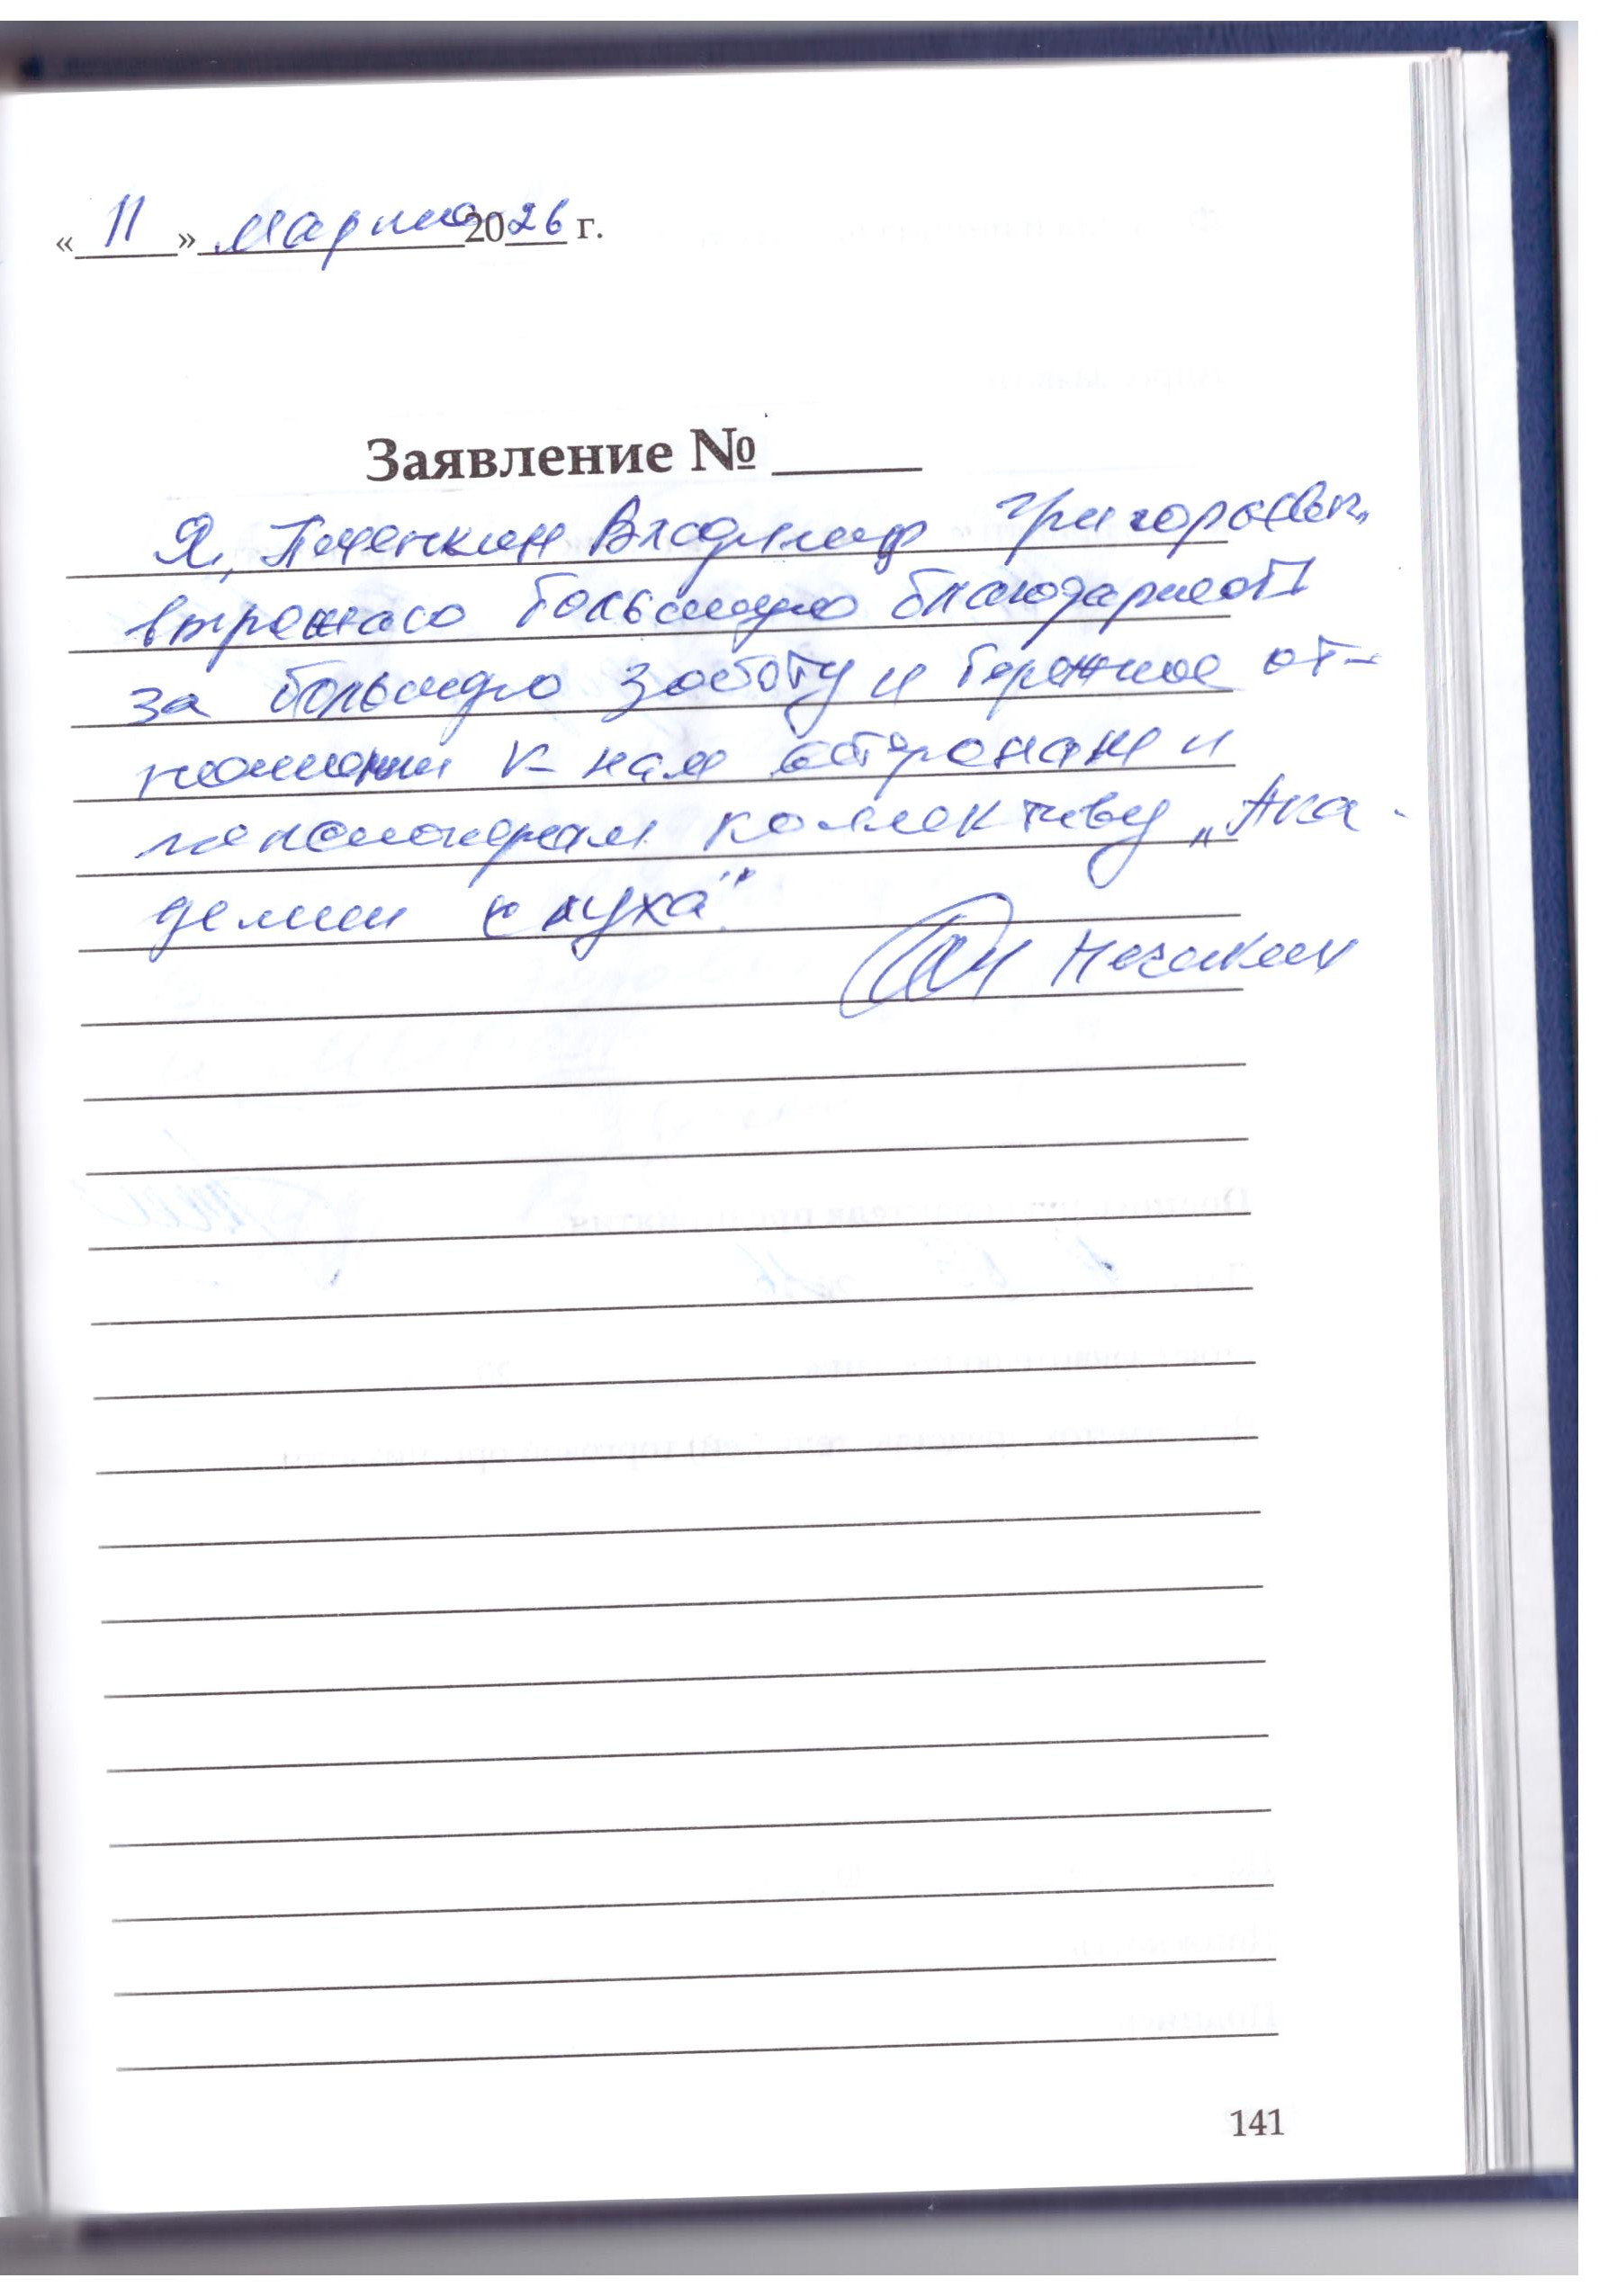 « 11 » марта 2026 г.
Заявление № ____
Я, Владимир Григорьевич,
выражаю большую благодарность
за большую заботу и бережное от-
ношении к нам ветеранам и
пенсионерам коллективу „Ака-
демии слуха".
141